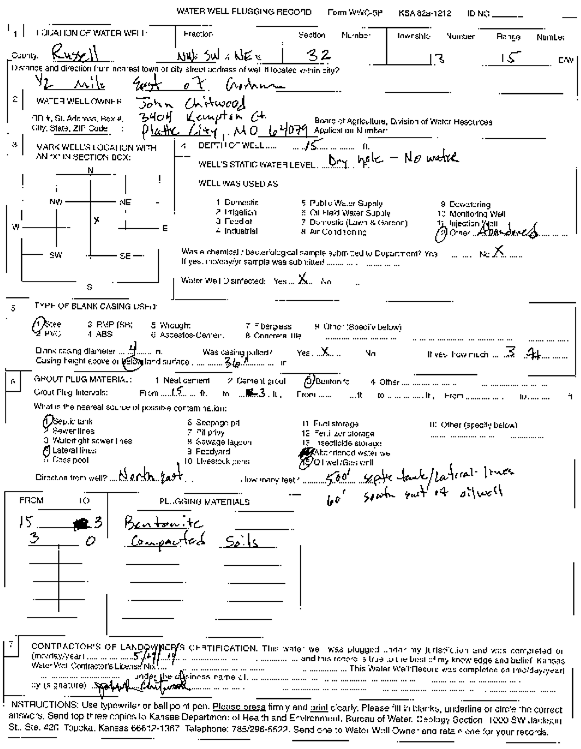 WATER WELL PLUGGING RECORD Form WWC-5P KSA 82a-1212 ID NO.
1 LOCATION OF WATER WELL: Fraction Section Number Township Number Range Number
County: Russell NW¼ SW¼ NE¼ 32 13 15 E/W
Distance and direction from nearest town or city street address of well if located within city?
1/2 mile East of Gorham
2 WATER WELL OWNER: John Chitwood
RR #, St. Address, Box #: 3404 Kempton Ct. Board of Agriculture, Division of Water Resources
City, State, ZIP Code : Platte City, MO 64079 Application Number:
3 MARK WELL'S LOCATION WITH AN "X" IN SECTION BOX:
N
NW NE
W X E
SW SE
S
4 DEPTH OF WELL 15 ft.
WELL'S STATIC WATER LEVEL Dry hole - No water
WELL WAS USED AS
1 Domestic 5 Public Water Supply 9 Dewatering
2 Irrigation 6 Oil Field Water Supply 10 Monitoring Well
3 Feedlot 7 Domestic (Lawn & Garden) 11 Injection Well
4 Industrial 8 Air Conditioning 12 Other Abandoned
Was a chemical / bacteriological sample submitted to Department? Yes No X
If yes, mo/day/yr sample was submitted
Water Well Disinfected: Yes X No
5 TYPE OF BLANK CASING USED:
1 Steel 3 RMP (SR) 5 Wrought 7 Fiberglass 9 Other (Specify below)
2 PVC 4 ABS 6 Asbestos-Cement 8 Concrete Tile
Blank casing diameter 4 in. Was casing pulled? Yes X No If yes, how much 3 ft
Casing height above or below land surface 36" in
6 GROUT PLUG MATERIAL: 1 Neat cement 2 Cement grout 3 Bentonite 4 Other
Grout Plug Intervals: From 15 ft. to 3 ft., From ft. to ft., From to ft
What is the nearest source of possible contamination:
1 Septic tank 6 Seepage pit 11 Fuel storage 16 Other (specify below)
2 Sewer lines 7 Pit privy 12 Fertilizer storage
3 Watertight sewer lines 8 Sewage lagoon 13 Insecticide storage
4 Lateral lines 9 Feedyard 14 Abandoned water well
5 Cess pool 10 Livestock pens 15 Oil well/Gas well
Direction from well? North East How many feet? 500' septic tank/lateral lines
60' south east of oilwell
FROM TO PLUGGING MATERIALS
15 3 Bentonite
3 0 Compacted Soils
7 CONTRACTOR'S OR LANDOWNER'S CERTIFICATION. This water well was plugged under my jurisdiction and was completed on
(mo/day/year) and this record is true to the best of my knowledge and belief. Kansas
Water Well Contractor's License No. This Water Well Record was completed on (mo/day/year)
under the business name of
by (signature) Chitwood
INSTRUCTIONS: Use typewriter or ball point pen. Please press firmly and print clearly. Please fill in blanks, underline or circle the correct
answers. Send top three copies to Kansas Department of Health and Environment, Bureau of Water, Geology Section, 1000 SW Jackson
St., Ste. 420, Topeka, Kansas 66612-1367. Telephone: 785/296-5522. Send one to Water Well Owner and retain one for your records.